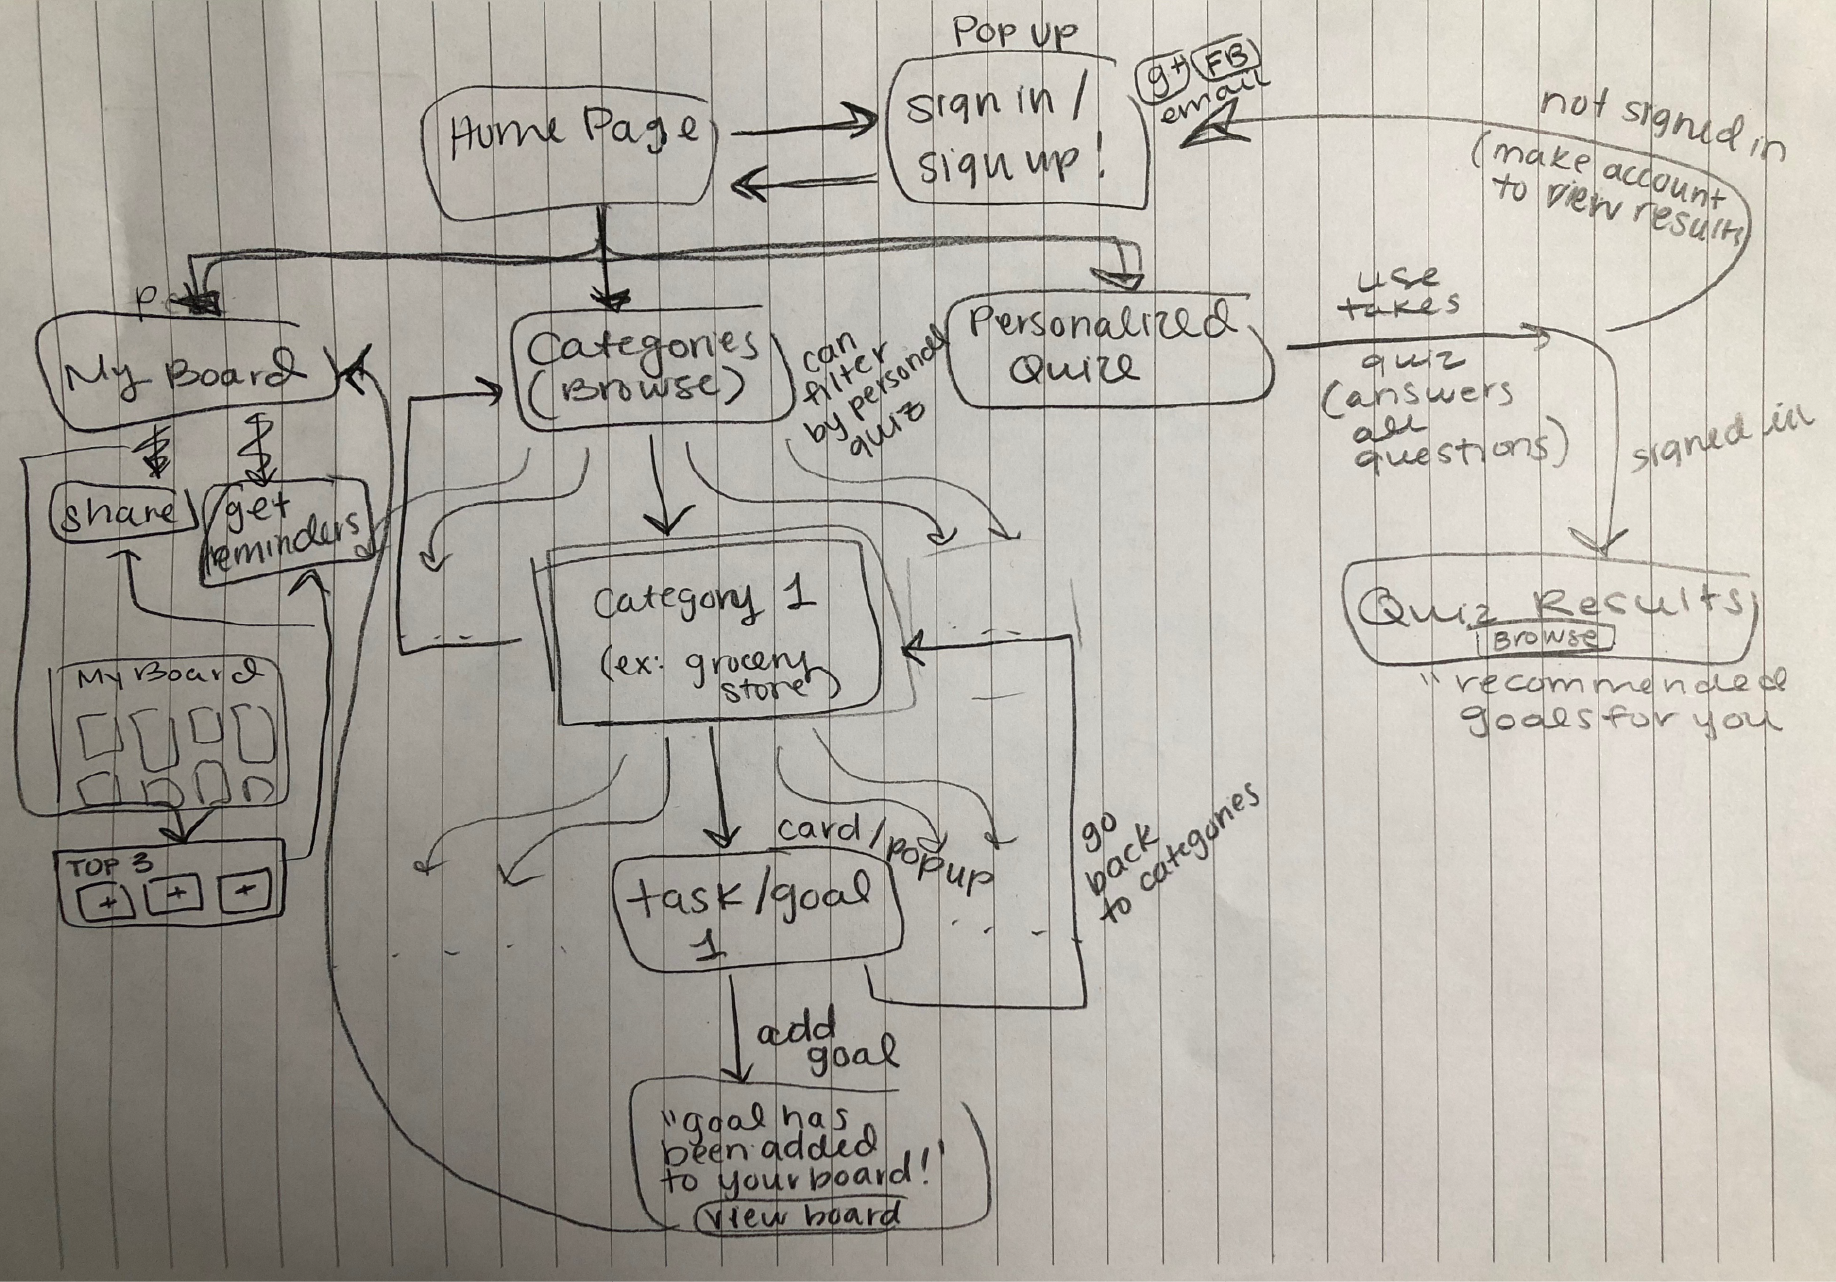 Pop up
Home Page
sign in /
sign up!
g+ FB
email
not signed in
(make account
to view results
My Board
Categories
(Browse)
can
filter
by personal
quiz
Personalized
Quize
use
takes
quiz
(answers
all
questions)
signed in
share
get
reminders
Category 1
(ex: grocery
store)
Quiz Results
Browse
"recommended
goals for you
My Board
TOP 3
+ + +
card/popup
task/goal
1
go
back
to categories
add
goal
"goal has
been added
to your board!"
view board